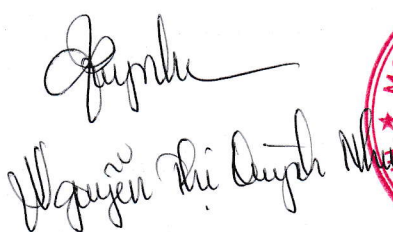 Quỳnh
Nguyễn Thị Quỳnh Như